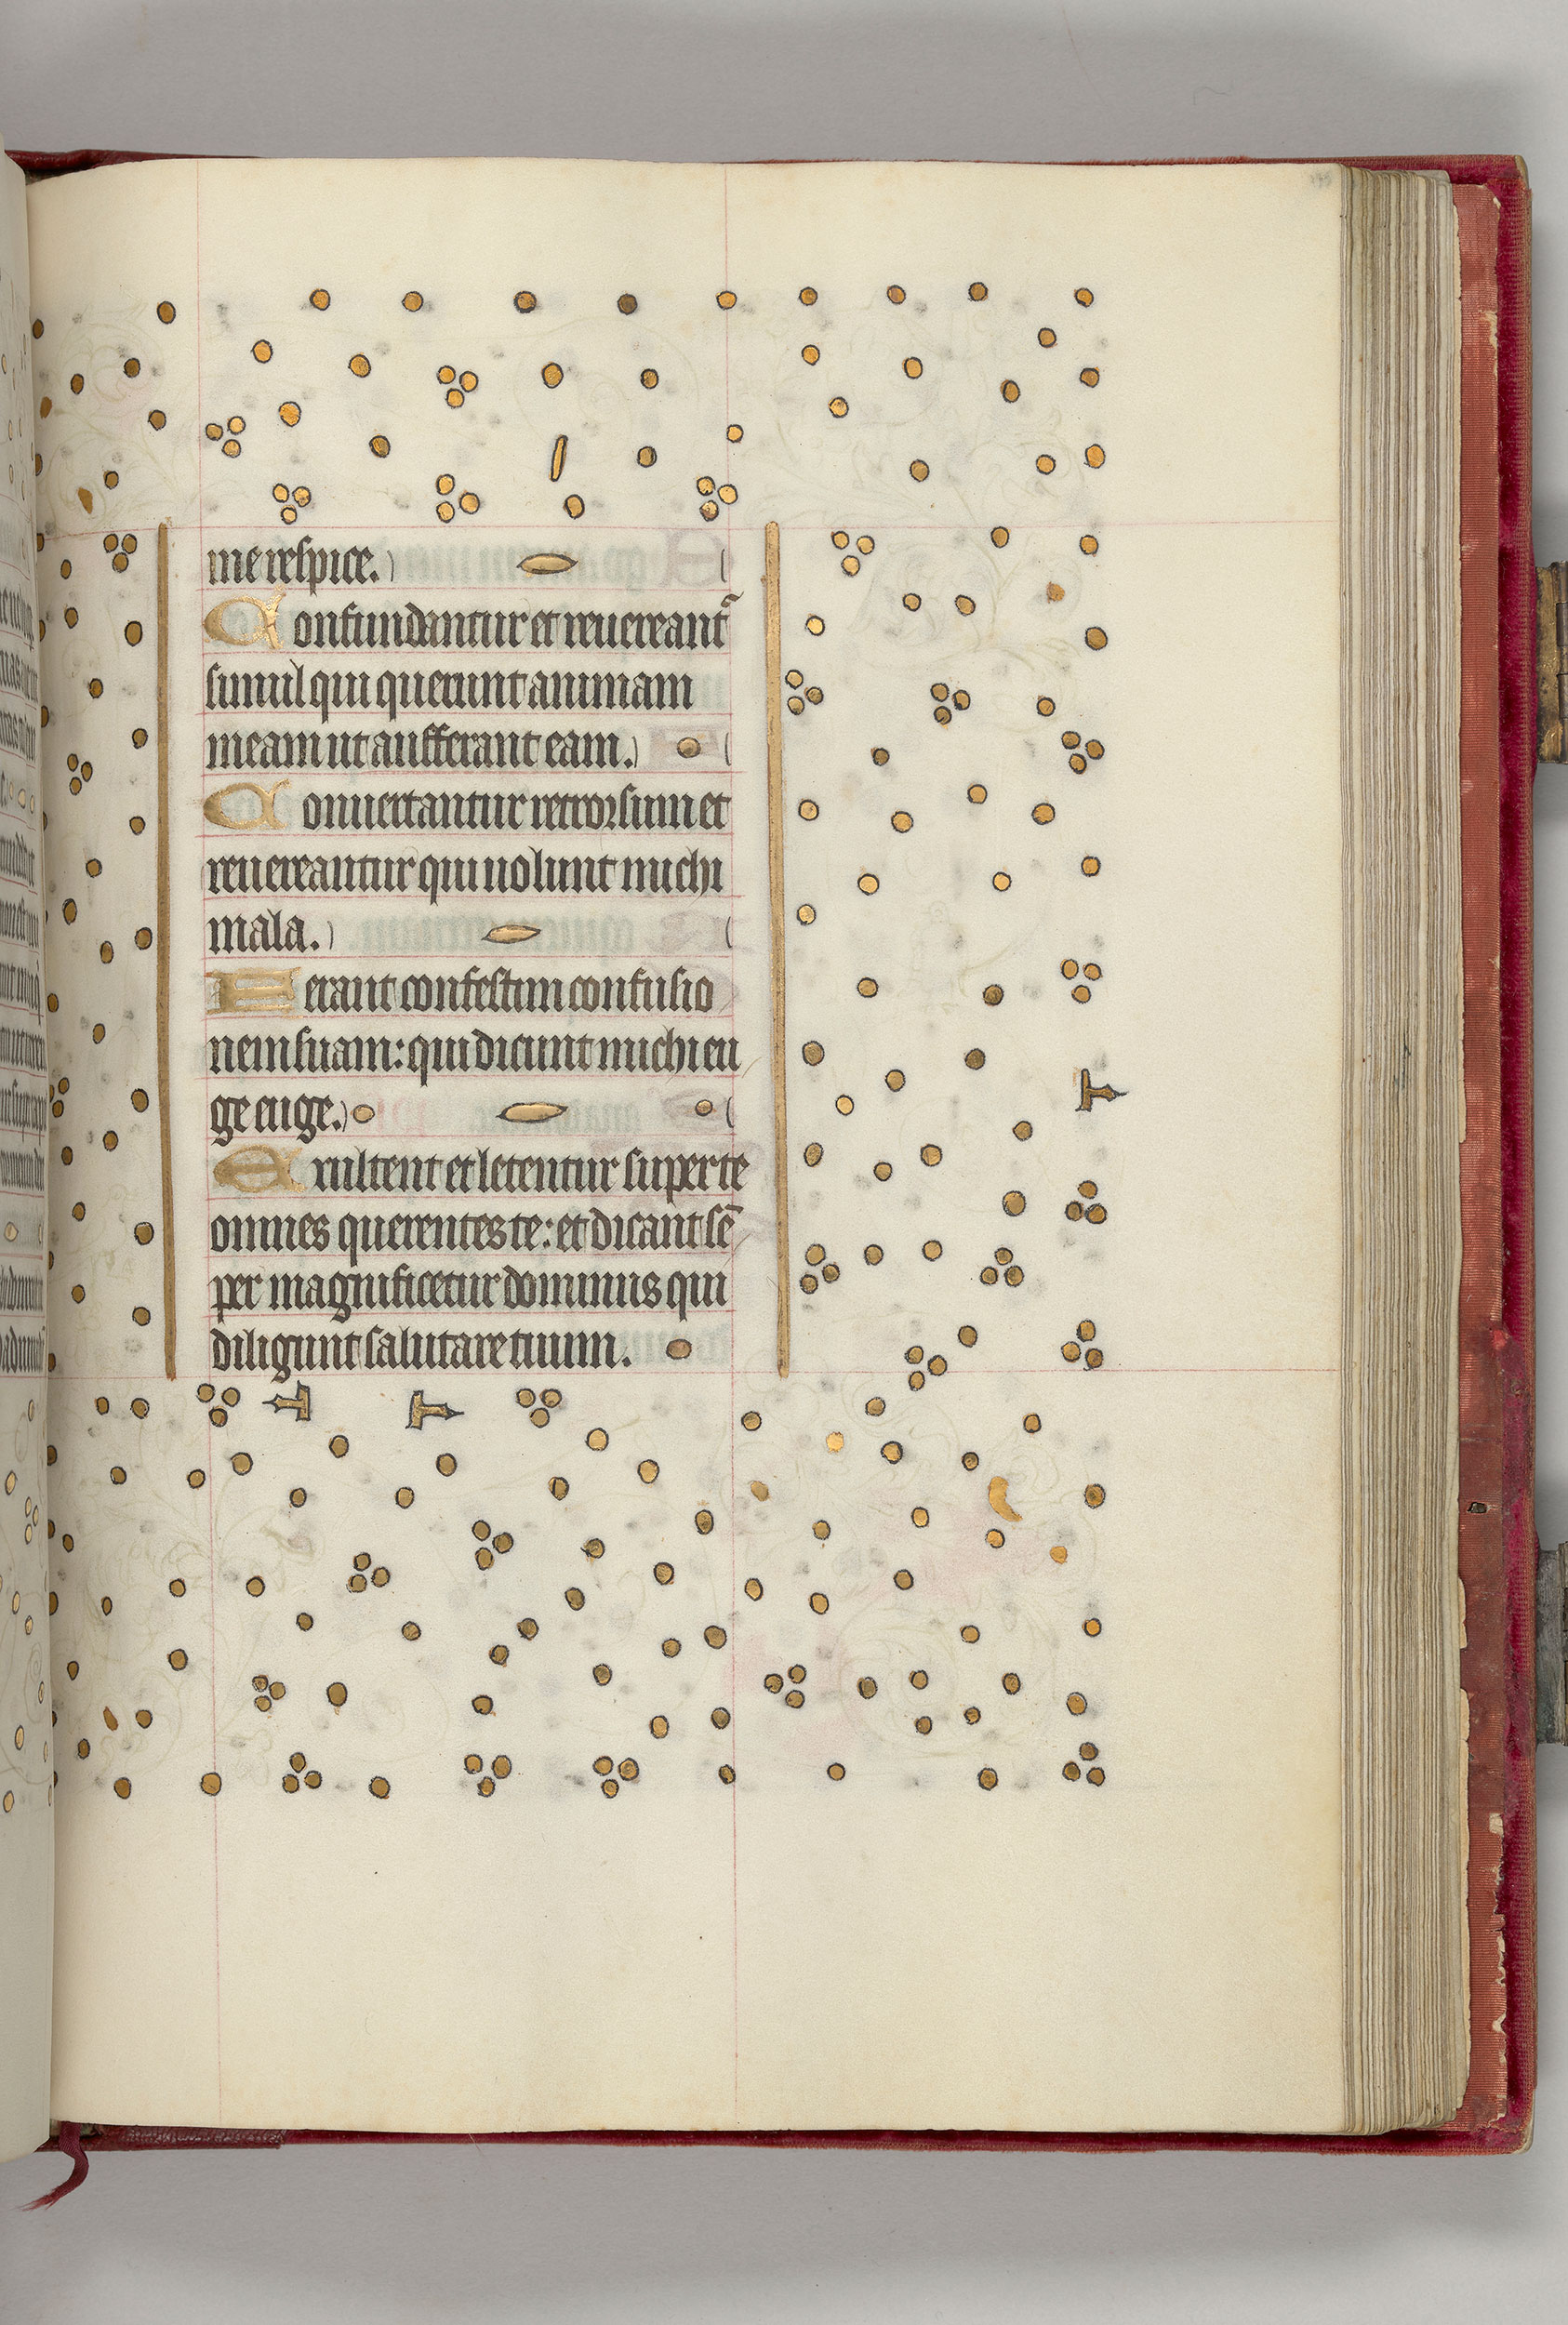 me respice.
Confundantur et reuereant᷑
simul qui querunt animam
meam ut aufferant eam.
Conuertantur retrorsum et
reuereantur qui uolunt michi
mala.
Ferant confestim confusio
nem suam: qui dicunt michi eu
ge euge.
Exultent et letentur super te
omnes querentes te: et dicant sē
per magnificetur dominus qui
diligunt salutare tuum.